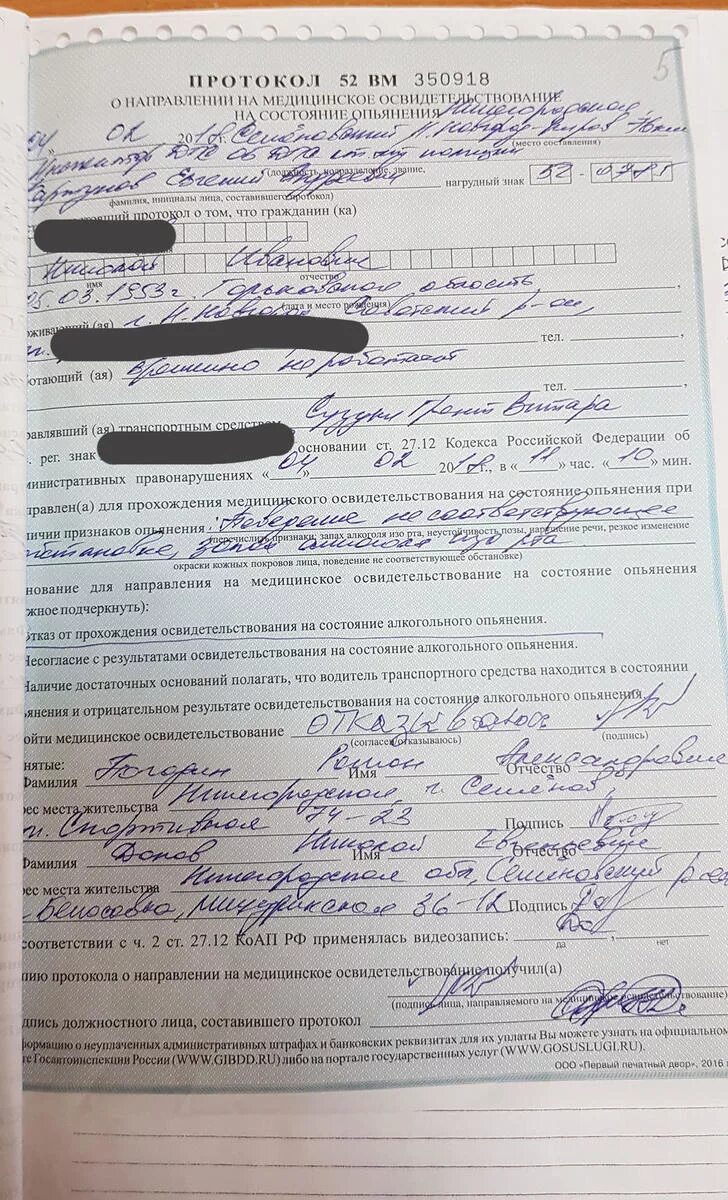 5
ПРОТОКОЛ 52 ВМ 350918
О НАПРАВЛЕНИИ НА МЕДИЦИНСКОЕ ОСВИДЕТЕЛЬСТВОВАНИЕ
НА СОСТОЯНИЕ ОПЬЯНЕНИЯ Нижегородская
04 02 2018г. Семёновский
(место составления)
(должность, подразделение, звание,
Евгений нагрудный знак 52 - 0781
фамилия, инициалы лица, составившего протокол)
протокол о том, что гражданин (ка)
Николай Иванович
имя отчество
25.03.1953г. Горьковская область
(дата и место рождения)
г. Н. Новгород р-он,
тел.
ботающий (ая) временно не работает
тел.
равлявший (ая) транспортным средством Сузуки Гранд Витара
рег. знак основании ст. 27.12 Кодекса Российской Федерации об
министративных правонарушениях «04» 02 2018г., в «11» час. «10» мин.
правлен(а) для прохождения медицинского освидетельствования на состояние опьянения при
личии признаков опьянения: Поведение не соответствующее
(перечислить признаки: запах алкоголя изо рта, неустойчивость позы, нарушение речи, резкое изменение
обстановке, запах алкоголя изо рта
окраски кожных покровов лица, поведение не соответствующее обстановке)
нование для направления на медицинское освидетельствование на состояние опьянения
жное подчеркнуть):
тказ от прохождения освидетельствования на состояние алкогольного опьянения.
Несогласие с результатами освидетельствования на состояние алкогольного опьянения.
Наличие достаточных оснований полагать, что водитель транспортного средства находится в состоянии
ьянения и отрицательном результате освидетельствования на состояние алкогольного опьянения
ойти медицинское освидетельствование отказываюсь
(согласен/отказываюсь) (подпись)
нятые: Погодин Роман Александрович
Фамилия Имя Отчество
рес места жительства Нижегородская, г. Семёнов,
Спортивная 74-23 Подпись
Фамилия Имя Николай Отчество Евгеньевич
рес места жительства Нижегородская обл, Семёновский р-он
Беласовка, Мичуринская 36-12 Подпись
соответствии с ч. 2 ст. 27.12 КоАП РФ применялась видеозапись: Да
да нет
пию протокола о направлении на медицинское освидетельствование получил(а)
(подпись лица, направляемого на медицинское освидетельствование)
дпись должностного лица, составившего протокол
формацию о неуплаченных административных штрафах и банковских реквизитах для их уплаты Вы можете узнать на официальном
те Госавтоинспекции России (WWW.GIBDD.RU) либо на портале государственных услуг (WWW.GOSUSLUGI.RU).
ООО «Первый печатный двор», 2016 г